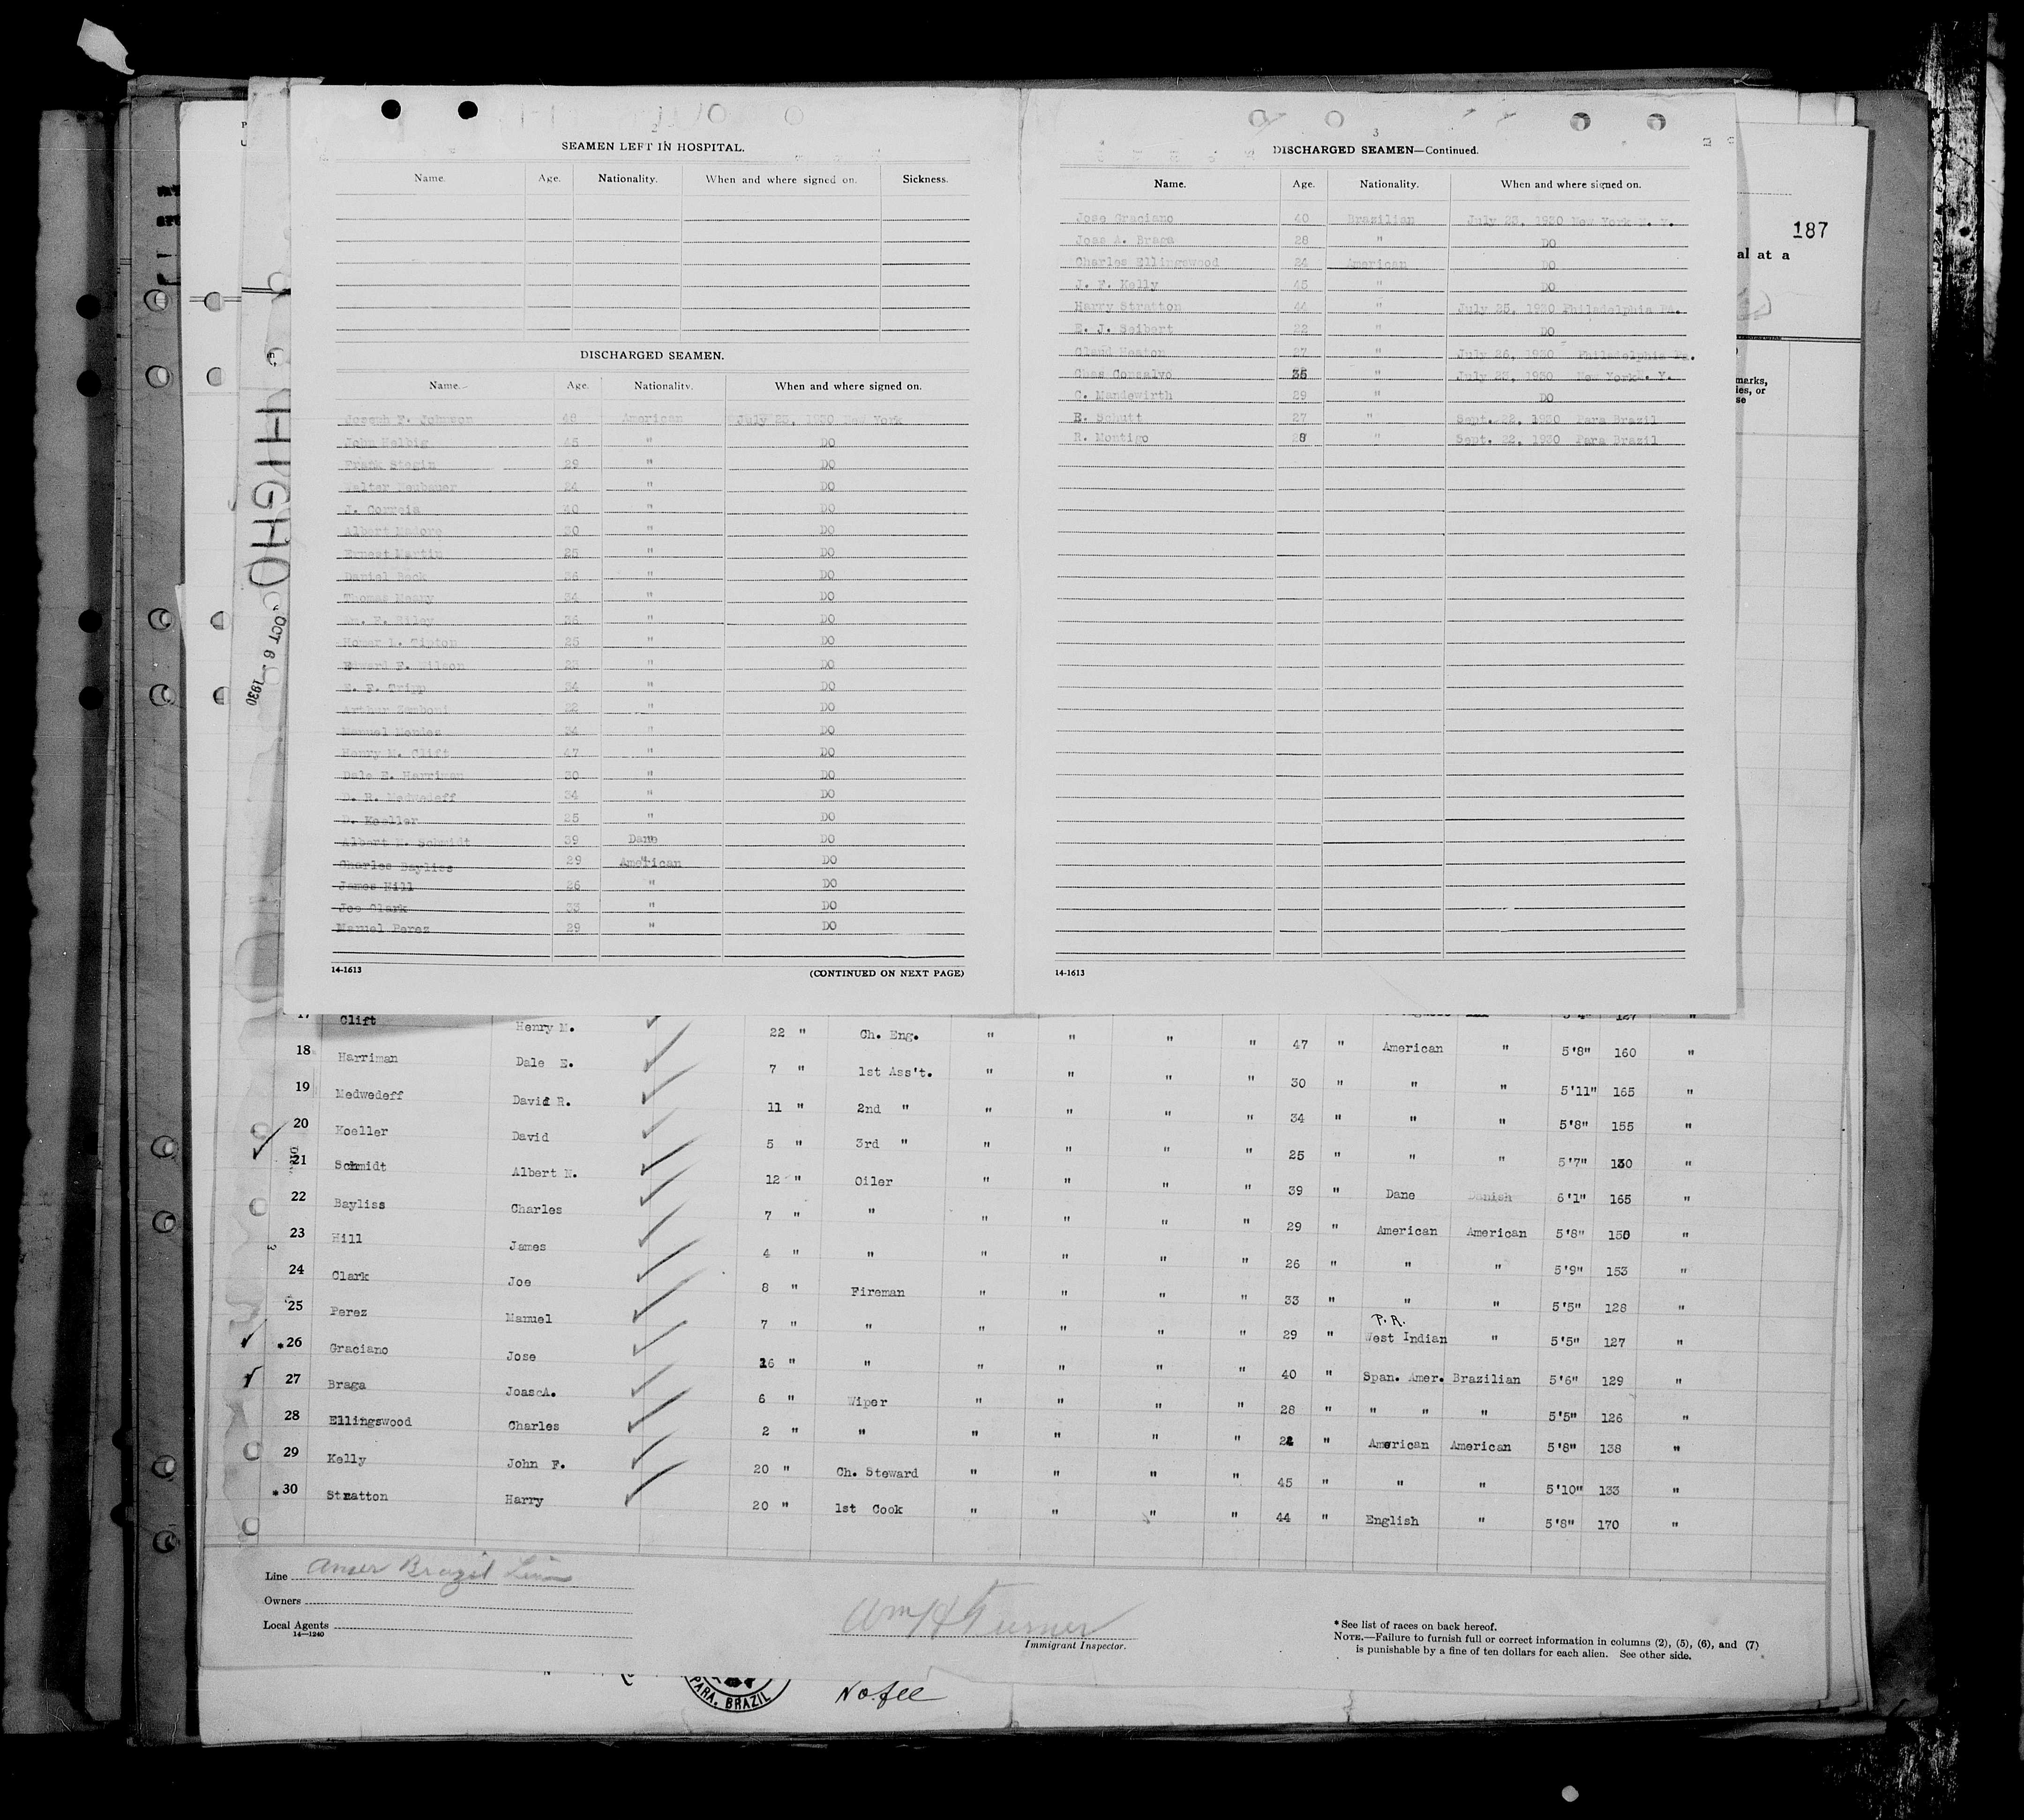 2
SEAMEN LEFT IN HOSPITAL.
Name. Age. Nationality. When and where signed on. Sickness.
DISCHARGED SEAMEN.
Name. Age. Nationality. When and where signed on.
Joseph F. Johnson 48 American July 23, 1930 New York
John Helbig 45 " DO
Frank 29 " DO
Walter Neubauer 24 " DO
J. Correia 40 " DO
Albert 30 " DO
Ernest Martin 25 " DO
Daniel Beck 36 " DO
Thomas 34 " DO
Wm. E. Riley 36 " DO
Homer L. Tipton 25 " DO
Edward F. Wilson 23 " DO
E. F. Tripp 34 " DO
Arthur Zamboni 22 " DO
Manuel Mendez 34 " DO
Henry M. Clift 47 " DO
Dale E. Harriman 30 " DO
D. R. Medwedeff 34 " DO
D. Koeller 25 " DO
Albert N. Schmidt 39 Dane DO
Charles Bayliss 29 American DO
James Hill 26 " DO
Joe Clark 33 " DO
Manuel Perez 29 " DO
14-1613 (CONTINUED ON NEXT PAGE)
3
DISCHARGED SEAMEN—Continued.
Name. Age. Nationality. When and where signed on.
Jose Graciano 40 Brazilian July 23, 1930 New York N. Y.
Joas A. Braga 28 " DO
Charles Ellingswood 24 American DO
J. F. Kelly 45 " DO
Harry Stratton 44 " July 25, 1930 Philadelphia Pa.
E. J. Seibert 22 " DO
27 " July 26, 1930 Philadelphia Pa.
Chas Gonzalvo 35 " July 23, 1930 New York N. Y.
C. Mandewirth 29 " DO
E. Schutt 27 " Sept. 22, 1930 Para Brazil
R. Montigo 28 " Sept. 22, 1930 Para Brazil
14-1613
187
al at a
marks,
les, or
se
OCT 6 1930
17 Clift Henry M. 22 " Ch. Eng. " " " " 47 " American " 5'8" 160 "
18 Harriman Dale E. 7 " 1st Ass't. " " " " 30 " " " 5'11" 165 "
19 Medwedeff David R. 11 " 2nd " " " " " 34 " " " 5'8" 155 "
20 Koeller David 5 " 3rd " " " " " 25 " " " 5'7" 130 "
21 Schmidt Albert N. 12 " Oiler " " " " 39 " Dane Danish 6'1" 165 "
22 Bayliss Charles 7 " " " " " " 29 " American American 5'8" 150 "
23 Hill James 4 " " " " " " 26 " " " 5'9" 153 "
24 Clark Joe 8 " Fireman " " " " 33 " " " 5'5" 128 "
25 Perez Manuel 7 " " " " " " 29 " P.R. West Indian " 5'5" 127 "
*26 Graciano Jose 16 " " " " " " 40 " Span. Amer. Brazilian 5'6" 129 "
27 Braga Joas A. 6 " Wiper " " " " 28 " " " " 5'5" 126 "
28 Ellingswood Charles 2 " " " " " " 24 " American American 5'8" 138 "
29 Kelly John F. 20 " Ch. Steward " " " " 45 " " " 5'10" 133 "
*30 Stratton Harry 20 " 1st Cook " " " " 44 " English " 5'8" 170 "
Line Amer Brazil Line
Owners
Local Agents
14—1240
Wm H Turner
Immigrant Inspector.
* See list of races on back hereof.
NOTE.—Failure to furnish full or correct information in columns (2), (5), (6), and (7)
is punishable by a fine of ten dollars for each alien. See other side.
PARA, BRAZIL
No fee